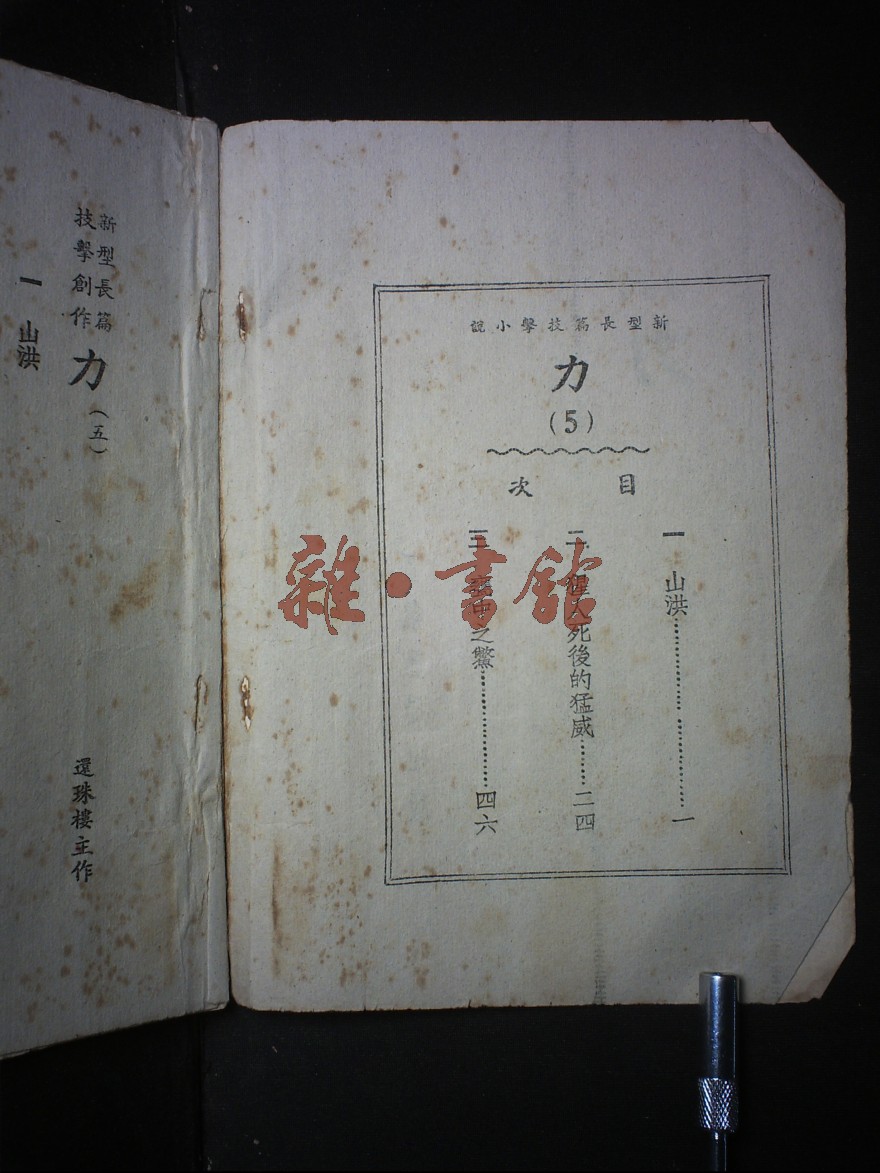 新型長篇技擊小說
力
(5)
目次
一 山洪 一
二 猩人死後的猛威 二四
三 甕中之鱉 四六
新型長篇
技擊創作
力
(五)
還珠樓主作
一 山洪
雜·書館